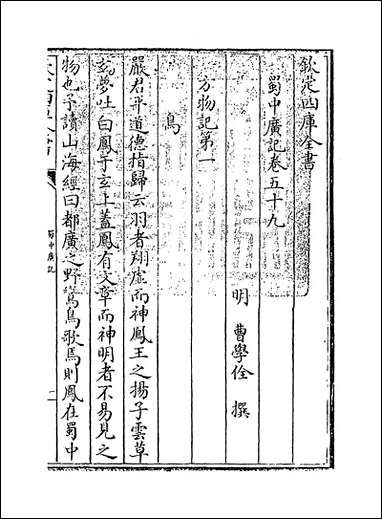 欽定四庫全書
蜀中廣記卷五十九
明 曹學佺 撰
方物記第一
鳥
嚴君平道德指歸云羽者翔虛而神鳳王之揚子雲草
𤣥夢吐白鳳于𤣥上蓋鳳有文章而神明者不易見之
物也予讀山海經曰都廣之野鸞鳥歌焉則鳳在蜀中
蜀中廣記